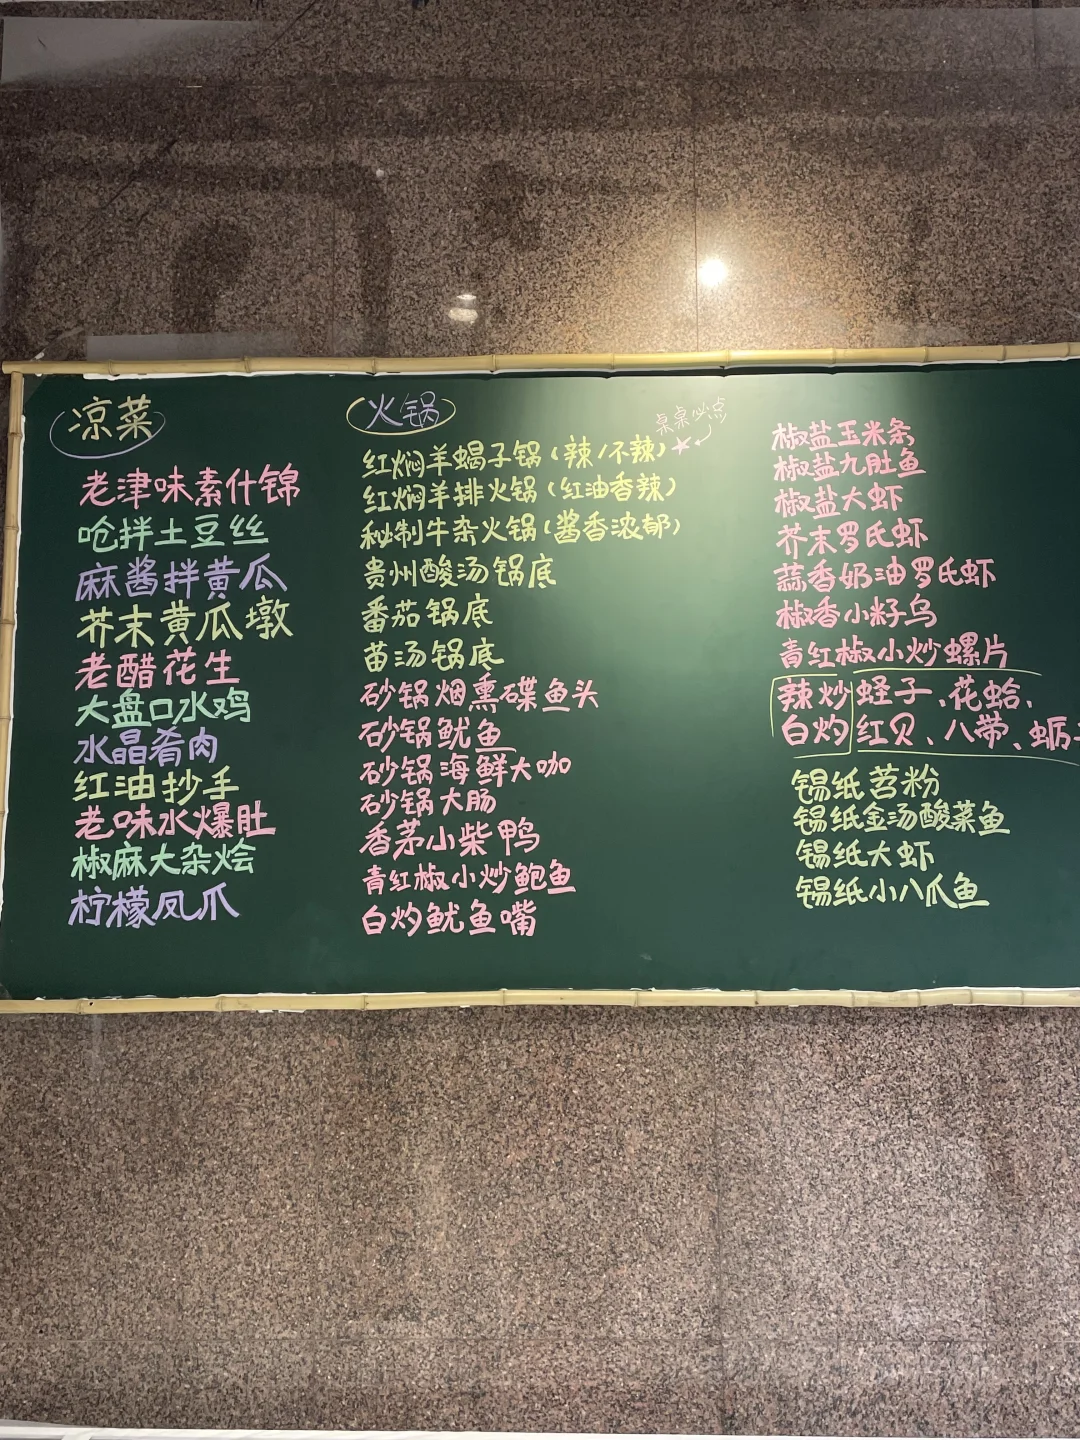 凉菜
老津味素什锦
呛拌土豆丝
麻酱拌黄瓜
芥末黄瓜墩
老醋花生
大盘口水鸡
水晶肴肉
红油抄手
老味水爆肚
椒麻大杂烩
柠檬凤爪
火锅
桌桌必点
红焖羊蝎子锅(辣/不辣)
红焖羊排火锅(红油香辣)
秘制牛杂火锅(酱香浓郁)
贵州酸汤锅底
番茄锅底
菌汤锅底
砂锅烟熏碟鱼头
砂锅鱿鱼
砂锅海鲜大咖
砂锅大肠
香茅小柴鸭
青红椒小炒鲍鱼
白灼鱿鱼嘴
椒盐玉米条
椒盐九肚鱼
椒盐大虾
芥末罗氏虾
蒜香奶油罗氏虾
椒香小籽乌
青红椒小炒螺片
辣炒 蛏子、花蛤、
白灼 红贝、八带、蛎
锡纸苕粉
锡纸金汤酸菜鱼
锡纸大虾
锡纸小八爪鱼